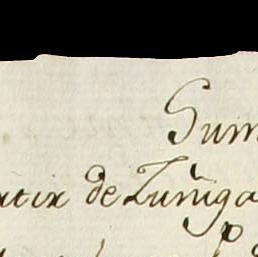 Sum
rtir de Zuñiga
p